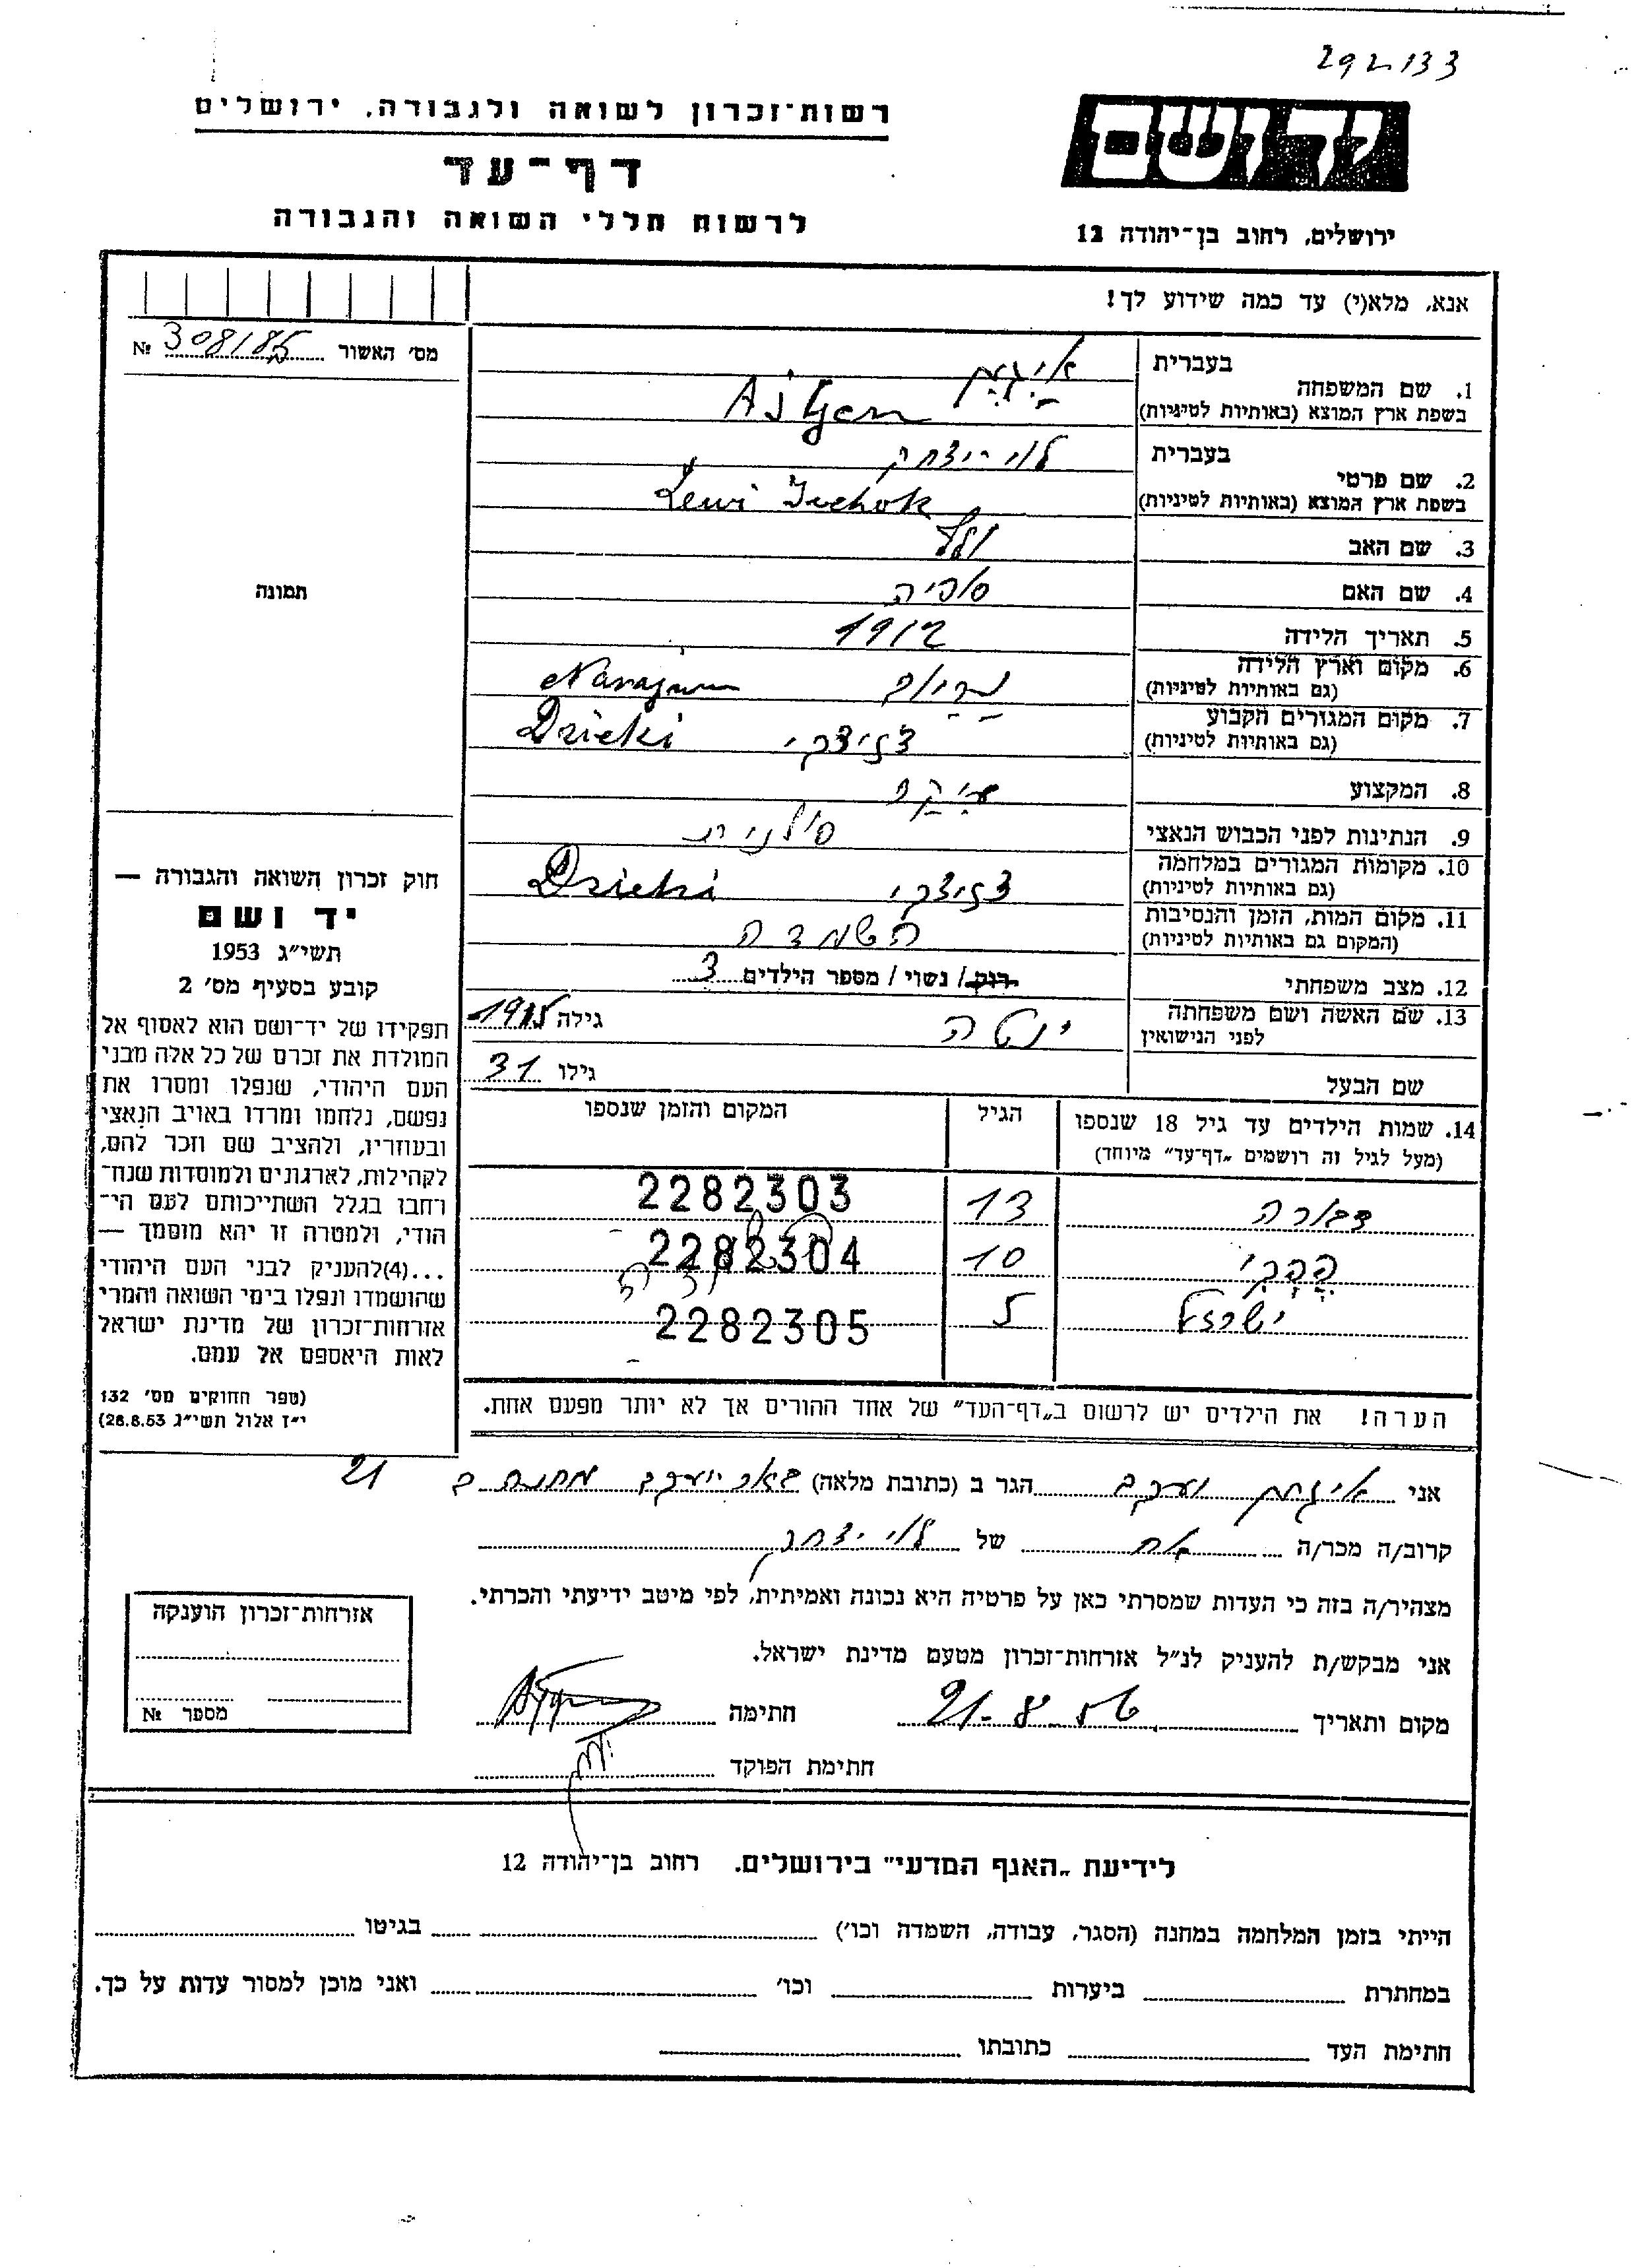 292133
רשות־זכרון לשואה ולגבורה, ירושלים
דף־עד
לרשום חללי השואה והגבורה
יד ושם
ירושלים, רחוב בן־יהודה 12
אנא, מלא(י) עד כמה שידוע לך!
מס' האשור № 308185
בעברית
1. שם המשפחה
בשפת ארץ המוצא (באותיות לטיניות) Ajgen
בעברית לוי יצחק
2. שם פרטי
בשפת ארץ המוצא (באותיות לטיניות) Lewi Icchok
3. שם האב
4. שם האם סופיה
5. תאריך הלידה 1912
6. מקום וארץ הלידה
(גם באותיות לטיניות)
7. מקום המגורים הקבוע
(גם באותיות לטיניות) דזיצקי Dzicki
8. המקצוע
9. הנתינות לפני הכבוש הנאצי פולנית
10. מקומות המגורים במלחמה
(גם באותיות לטיניות) דזיצקי Dzicki
11. מקום המות, הזמן והנסיבות
(המקום גם באותיות לטיניות) השמדה
12. מצב משפחתי רווק / נשוי / מספר הילדים 3
13. שם האשה ושם משפחתה
לפני הנישואין ינטה גילה 1915
שם הבעל גילו 31
תמונה
חוק זכרון השואה והגבורה —
יד ושם
תשי״ג 1953
קובע בסעיף מס' 2
תפקידו של יד־ושם הוא לאסוף אל
המולדת את זכרם של כל אלה מבני
העם היהודי, שנפלו ומסרו את
נפשם, נלחמו ומרדו באויב הנאצי
ובעוזריו, ולהציב שם וזכר להם,
לקהילות, לארגונים ולמוסדות שנח־
רחבו בגלל השתייכותם לעם הי־
הודי, ולמטרה זו יהא מוסמך —
...(4) להעניק לבני העם היהודי
שהושמדו ונפלו בימי השואה והמרי
אזרחות־זכרון של מדינת ישראל
לאות היאספם אל עמם.
(ספר החוקים מס' 132
י״ז אלול תשי״ג 28.8.53)
14. שמות הילדים עד גיל 18 שנספו
(מעל לגיל זה רושמים „דף־עד״ מיוחד)
הגיל
המקום והזמן שנספו
דבורה 13 2282303
10 2282304
ישראל 5 2282305
הערה! את הילדים יש לרשום ב„דף־העד״ של אחד ההורים אך לא יותר מפעם אחת.
אני איגן יעקב הגר ב (כתובת מלאה) באר יעקב מחנה ב 21
קרוב/ה מכר/ה אח של לוי יצחק
מצהיר/ה בזה כי העדות שמסרתי כאן על פרטיה היא נכונה ואמיתית, לפי מיטב ידיעתי והכרתי.
אני מבקש/ת להעניק לנ״ל אזרחות־זכרון מטעם מדינת ישראל.
מקום ותאריך 21-8-56 חתימה
חתימת הפוקד
אזרחות־זכרון הוענקה
מספר №
לידיעת „האגף המדעי״ בירושלים. רחוב בן־יהודה 12
הייתי בזמן המלחמה במחנה (הסגר, עבודה, השמדה וכו') בגיטו
במחתרת ביערות וכו' ואני מוכן למסור עדות על כך.
חתימת העד כתובתו